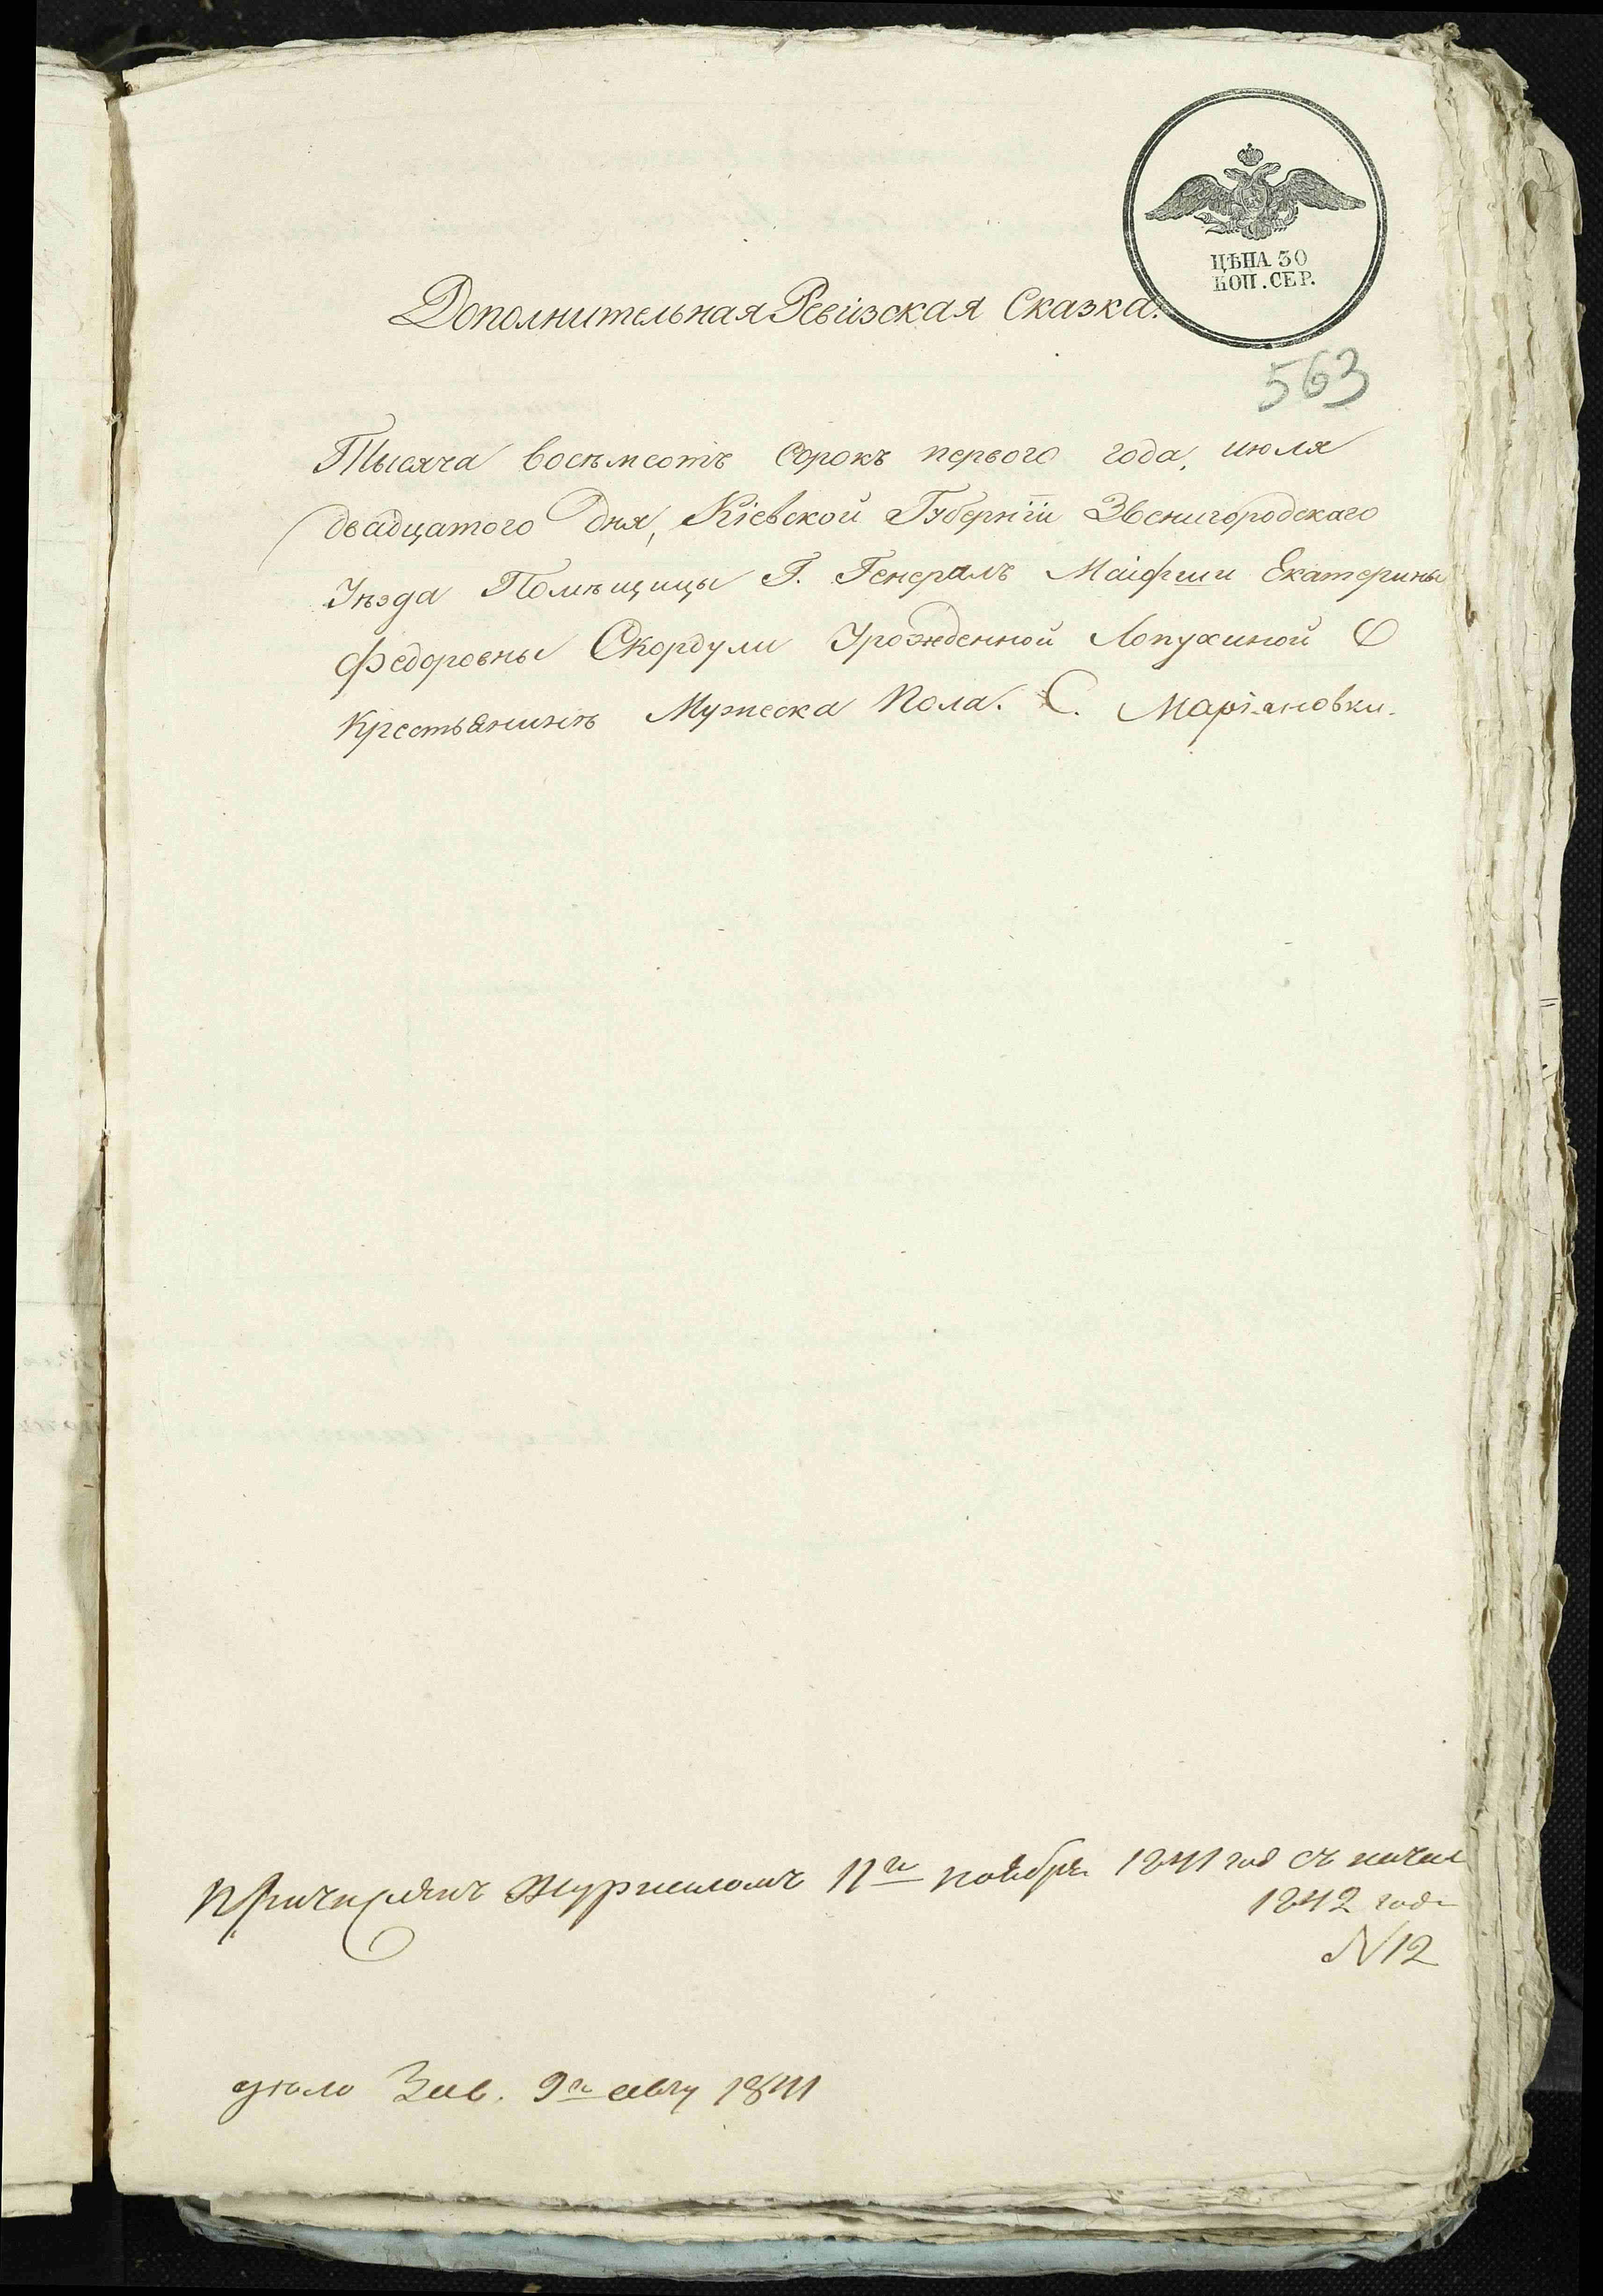 ЦѢНА 30
КОП. СЕР.
Дополнительная Ревизская Сказка.
563
Тысяча восѣмсотъ сорокъ первого года, июля
двадцатого дня, Кіевской Губерніи Звенигородскаго
Уѣзда Помѣщицы Г. Генералъ Маіорши Екатерины
Федоровны Скордули Урожденной Лопухиной О
Крестьянинѣ Мужеска Пола. С. Маріановки.
Причислянъ Журналомъ 11го ноября 1841 год съ начал
1842 года
N 12
дѣло Зав. 9го авгу 1841